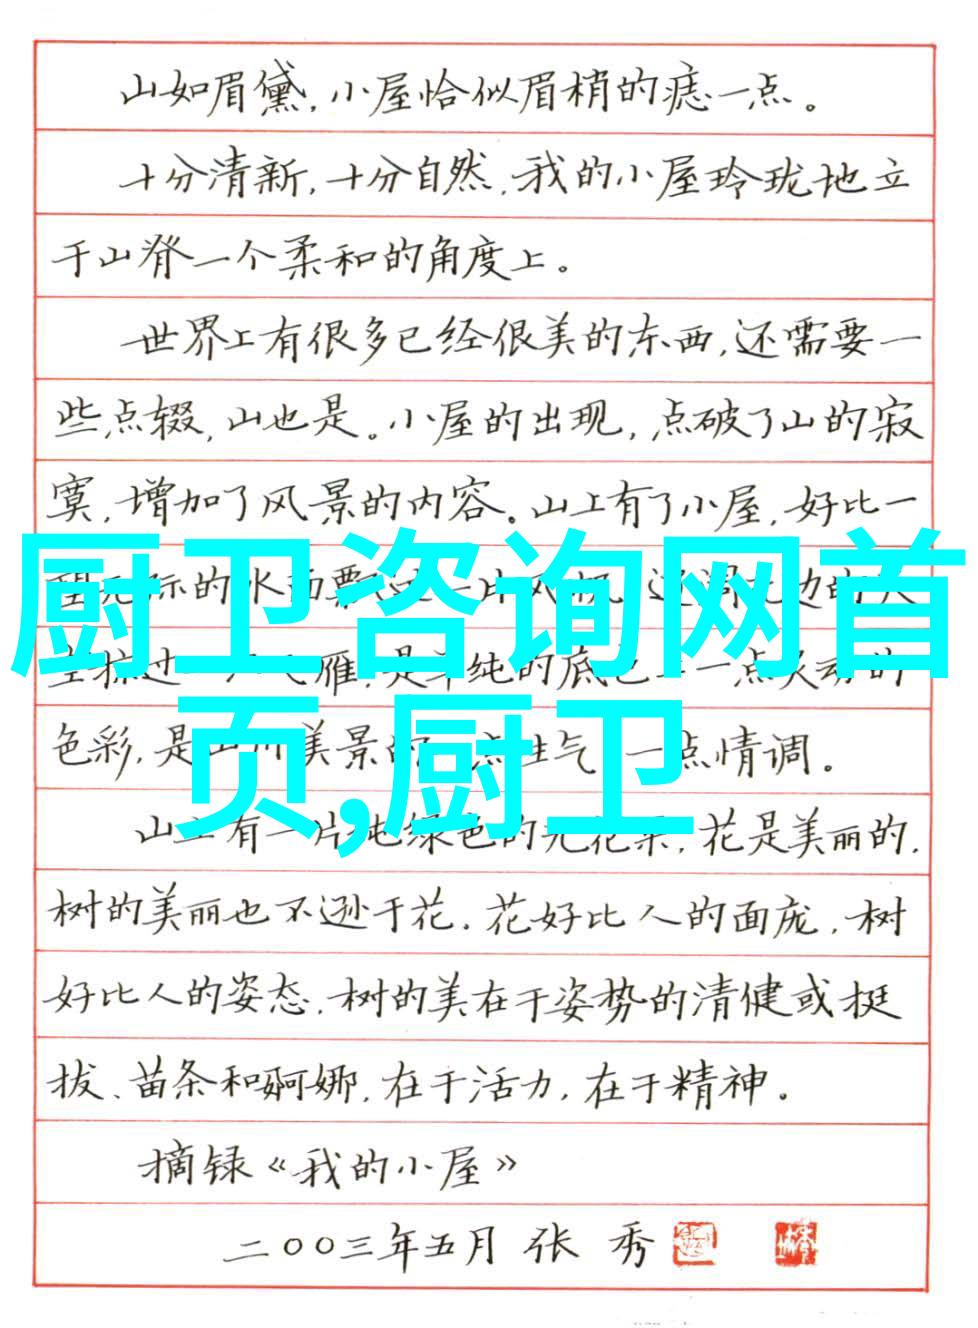 山如眉黛，小屋恰似眉梢的痣一点。
十分清新，十分自然，我的小屋玲珑地立
于山脊一个柔和的角度上。
世界上有很多已经很美的东西，还需要一
些点缀，山也是。小屋的出现，点破了山的寂
寞，增加了风景的内容。山上有了小屋，好比一
厨卫咨询网首
的水面飘
雁，是单纯的底色上一点灵动的
页,厨卫
色彩，是山川美景的一点生气，一点情调。
山上有一片纯绿色的无花果，花是美丽的，
树的美丽也不逊于花。花好比人的面庞，树
好比人的姿态。树的美在于姿势的清健或挺
拔、苗条和婀娜，在于活力，在于精神。
摘録《我的小屋》
二〇〇三年五月 张 秀